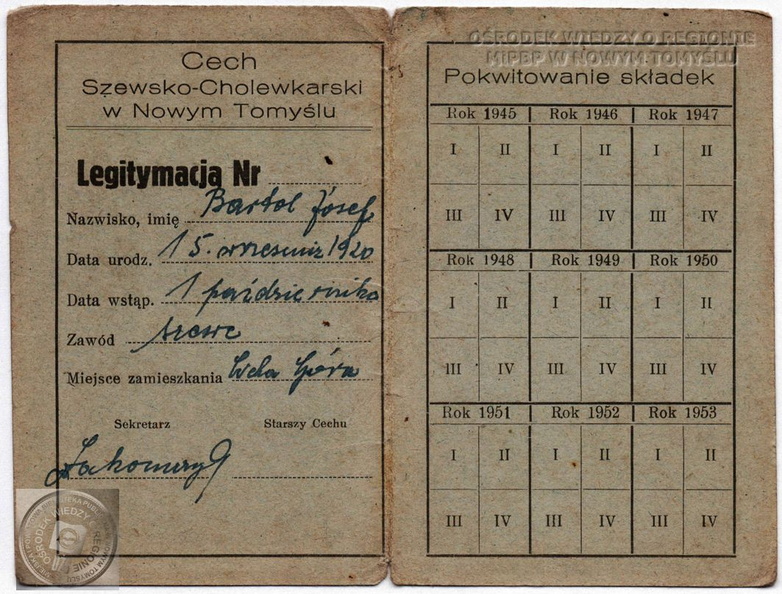 Cech
Szewsko-Cholewkarski
w Nowym Tomyślu
Legitymacja Nr
Nazwisko, imię Bartol Józef
Data urodz. 15. wrzesnia 1920
Data wstąp. 1 października
Zawód szewc
Miejsce zamieszkania Góra
Sekretarz Starszy Cechu
OŚRODEK WIEDZY O REGIONIE
MIPBP W NOWYM TOMYŚLU
Pokwitowanie składek
Rok 1945 Rok 1946 Rok 1947
I II I II I II
III IV III IV III IV
Rok 1948 Rok 1949 Rok 1950
I II I II I II
III IV III IV III IV
Rok 1951 Rok 1952 Rok 1953
I II I II I II
III IV III IV III IV
OŚRODEK WIEDZY O REGIONIE